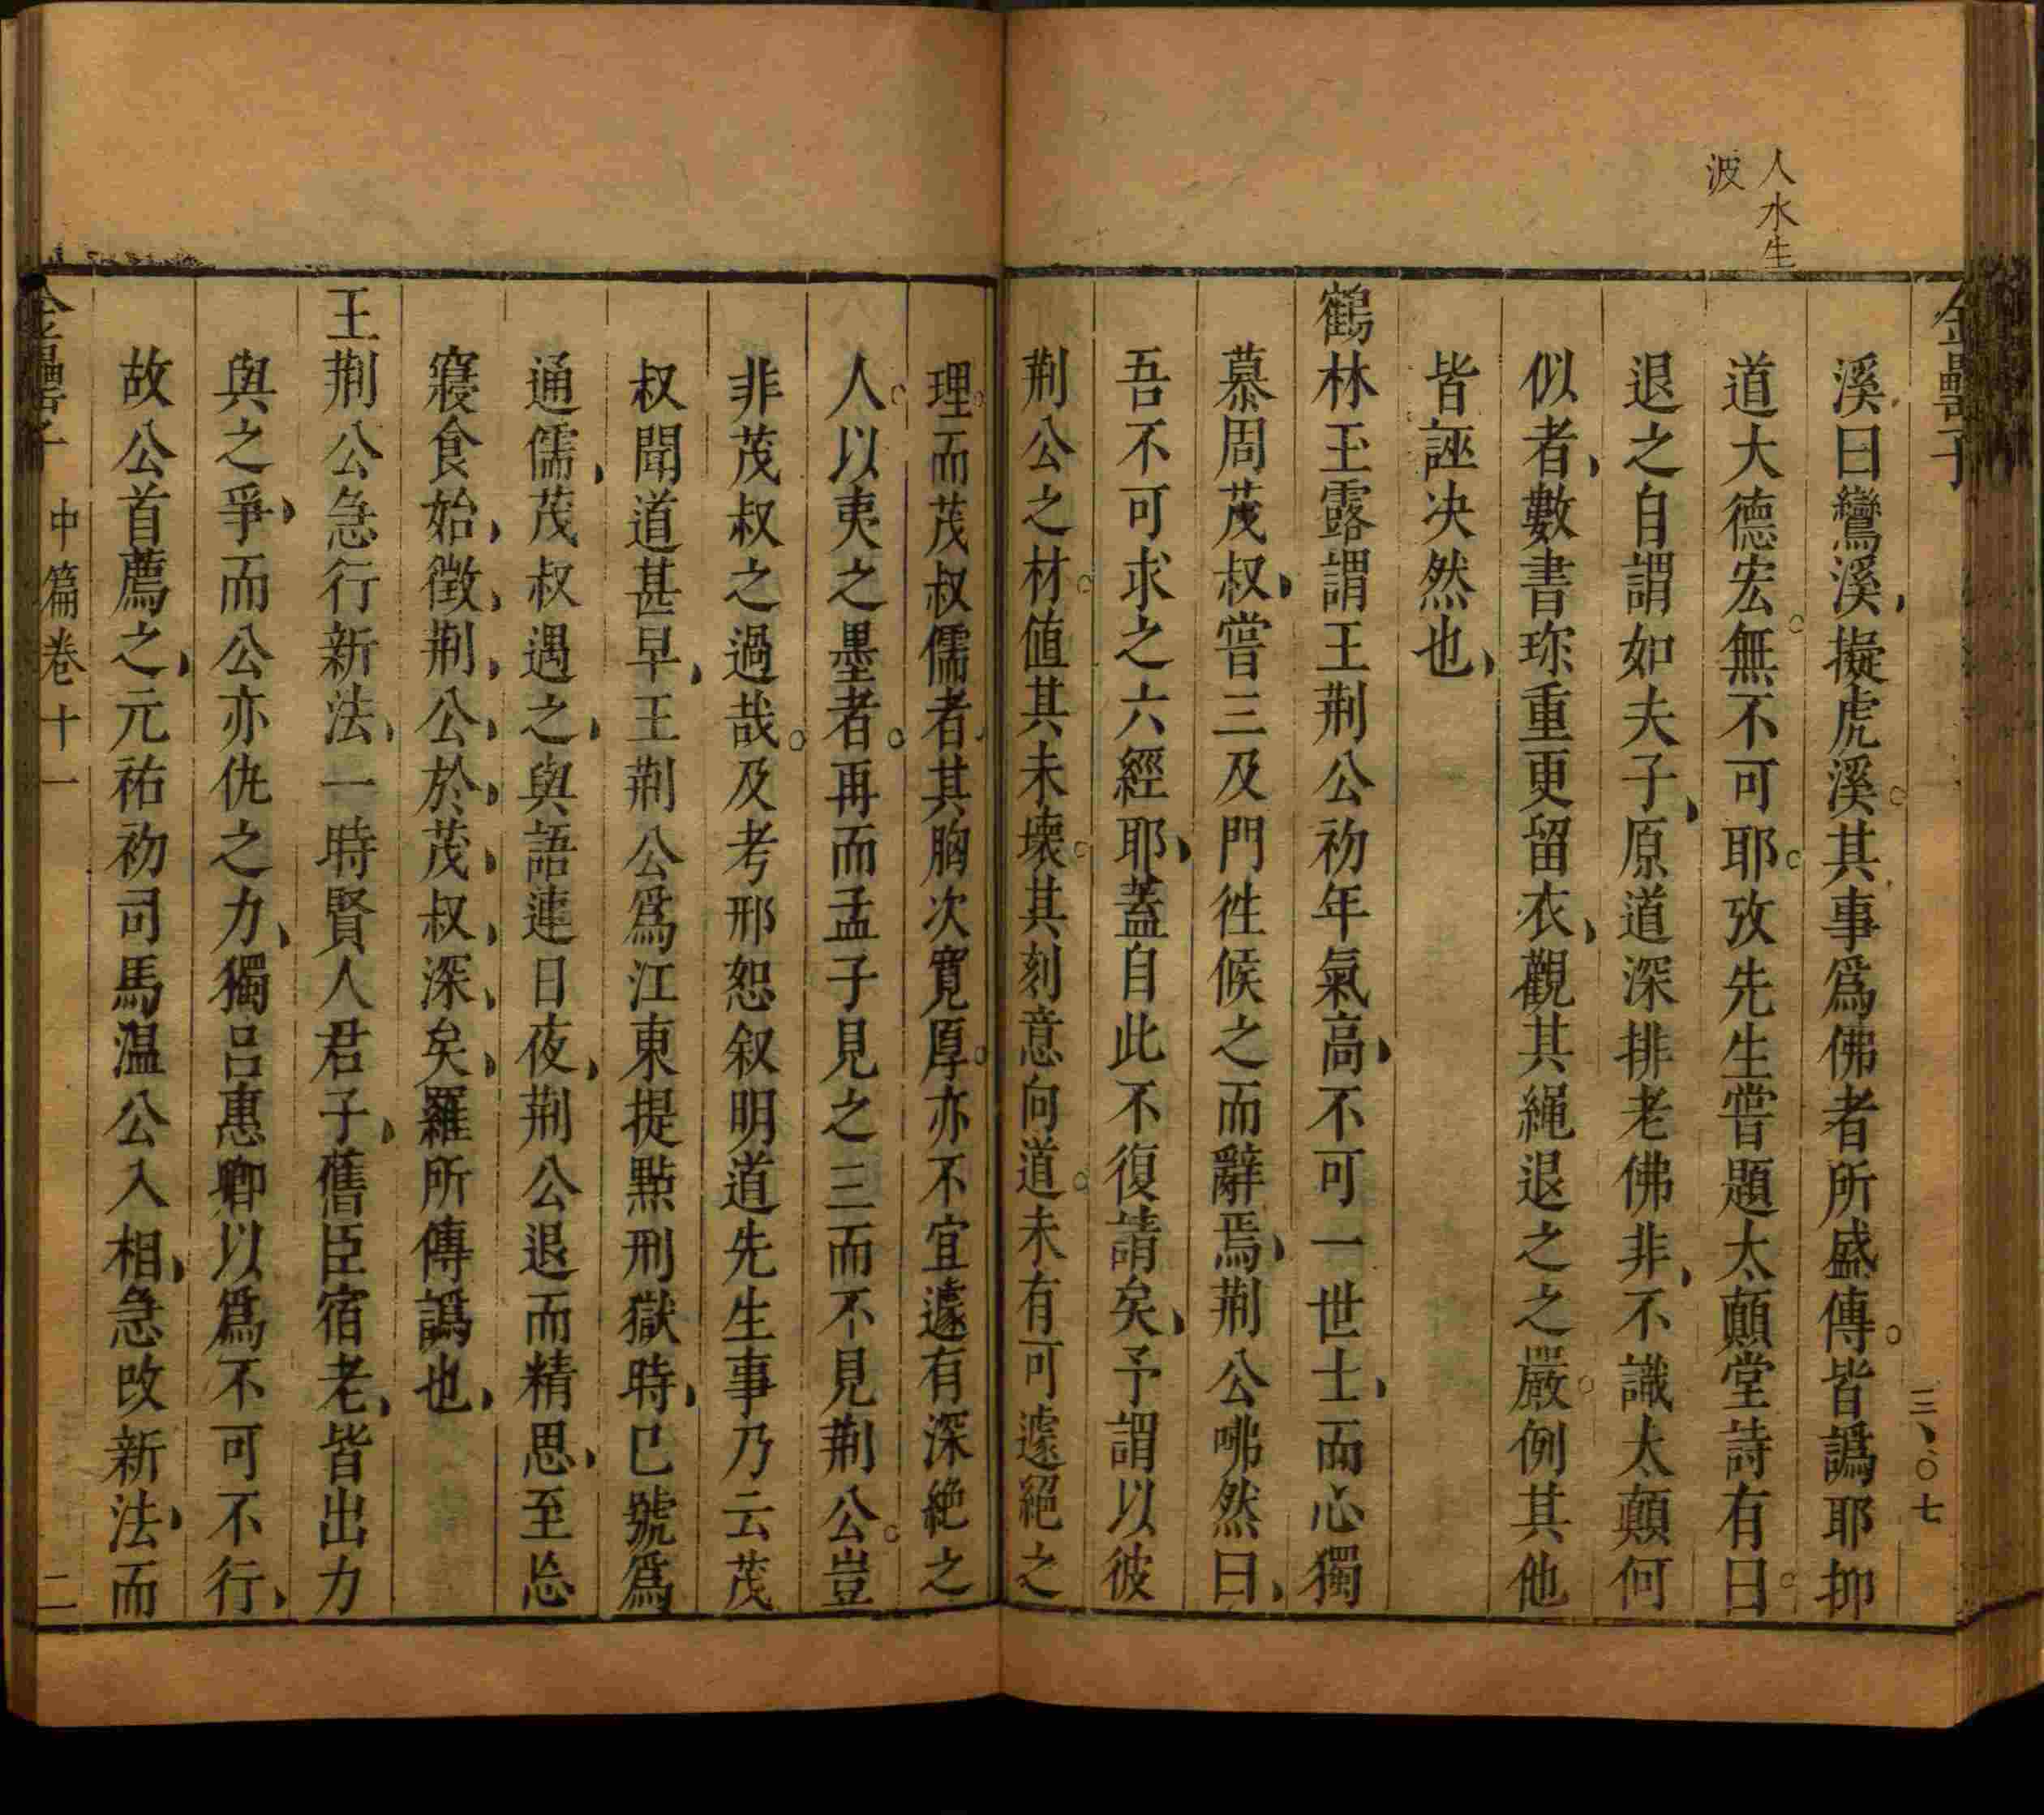 人水生
波
金罍子
三、〇七
溪曰鸞溪擬虎溪其事爲佛者所盛傳皆譌耶抑
道大德宏無不可耶攷先生嘗題太顛堂詩有曰
退之自謂如夫子原道深排老佛非不識太顛何
似者數書珎重更留衣觀其繩退之之嚴例其他
皆誣决然也
鶴林玉露謂王荆公初年氣高不可一世士而心獨
慕周茂叔嘗三及門徃候之而辭焉荆公咈然曰
吾不可求之六經耶蓋自此不復請矣予謂以彼
荆公之材値其未壊其刻意向道未有可遽絕之
理而茂叔儒者其胸次寛厚亦不宜遽有深絶之
人以夷之墨者再而孟子見之三而不見荆公豈
非茂叔之過哉及考邢恕叙明道先生事乃云茂
叔聞道甚早王荆公爲江東提點刑獄時已號爲
通儒茂叔遇之與語連日夜荆公退而精思至忘
寢食始徵荆公於茂叔深矣羅所傳譌也
王荆公急行新法一時賢人君子舊臣宿老皆出力
與之爭而公亦仇之力獨呂惠卿以爲不可不行
故公首薦之元祐初司馬温公入相急改新法而
金罍子
中篇卷十一
二